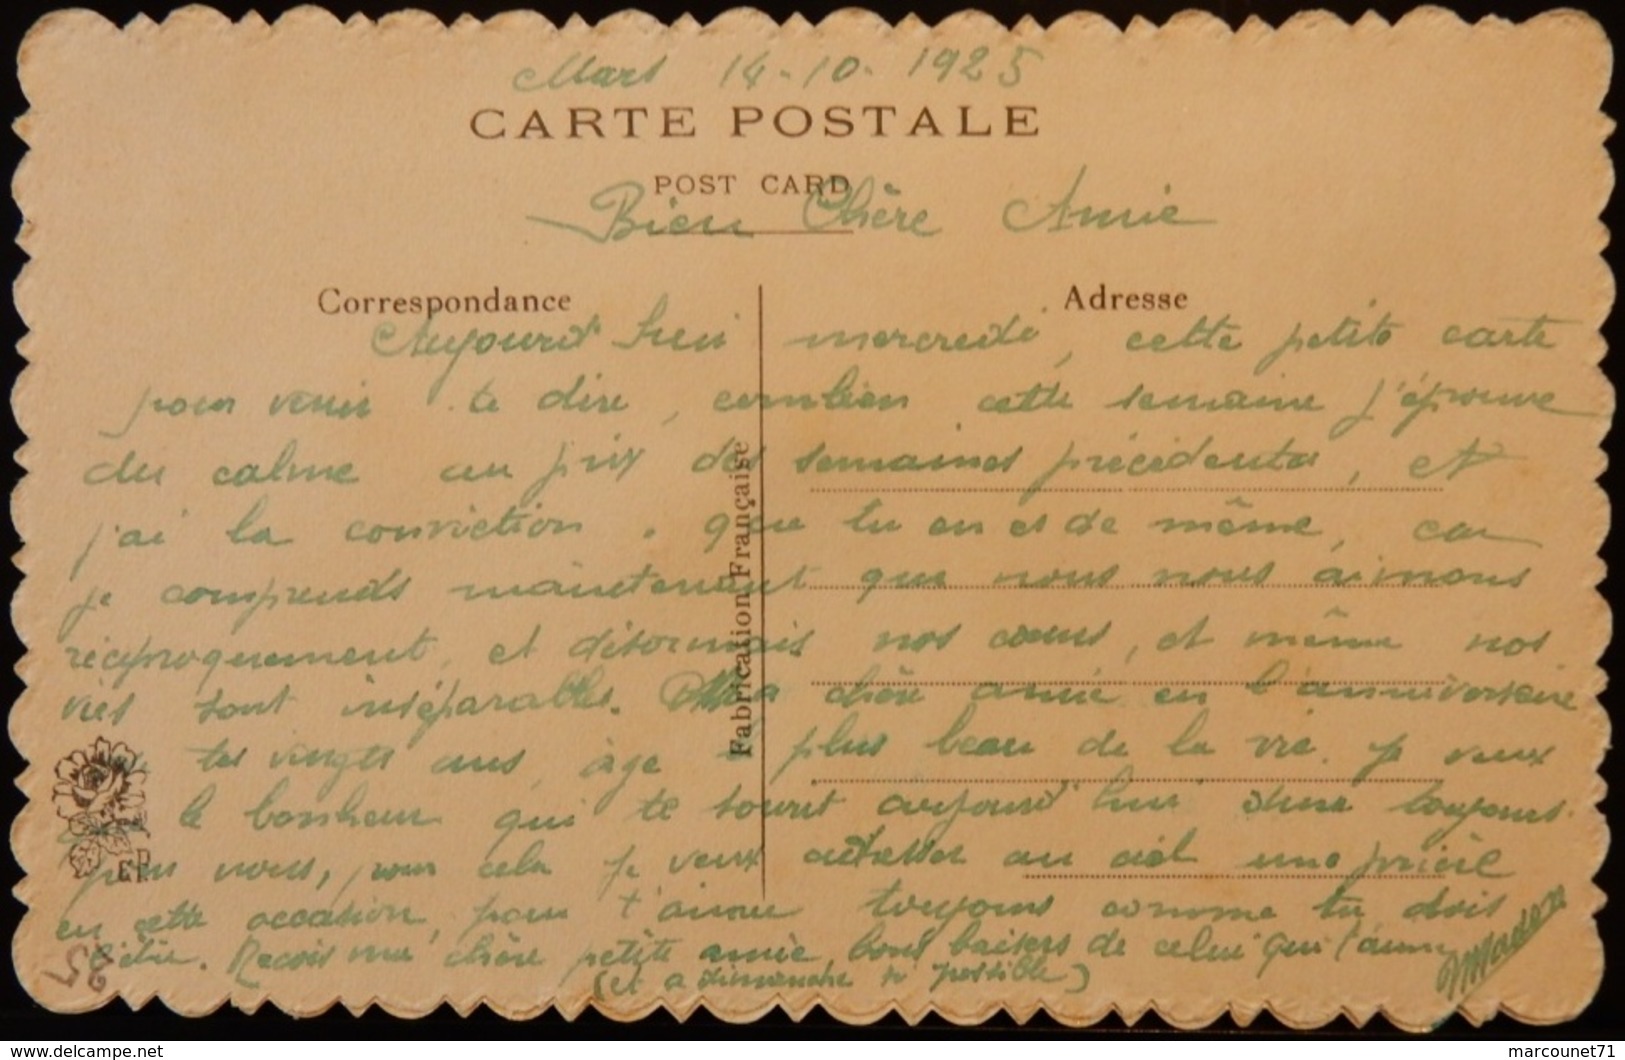 Mars 14-10-1925
CARTE POSTALE
POST CARD
Bien Chère Amie
Correspondance
Adresse
Aujourd'hui mercredi, cette petite carte
pour venir te dire, combien cette semaine j'éprouve
du calme au prix des semaines précédentes, et
j'ai la conviction. que tu en es de même, car
je comprends maintenant que nous nous aimons
réciproquement, et désormais nos cœurs, et même nos
vies sont inséparables. Ma chère amie en l'anniversaire
de tes vingts ans, âge plus beau de la vie. je veux
le bonheur qui te sourit aujourd'hui dure toujours
pour nous, pour cela je veux adresser au ciel une prière
en cette occasion, pour t'aimer toujours comme tu dois
l'être. Recois ma chère petite amie bons baisers de celui qui t'aime
(et a Dimanche si possible)
Fabrication Française
25
marcounet71
delcampe.net